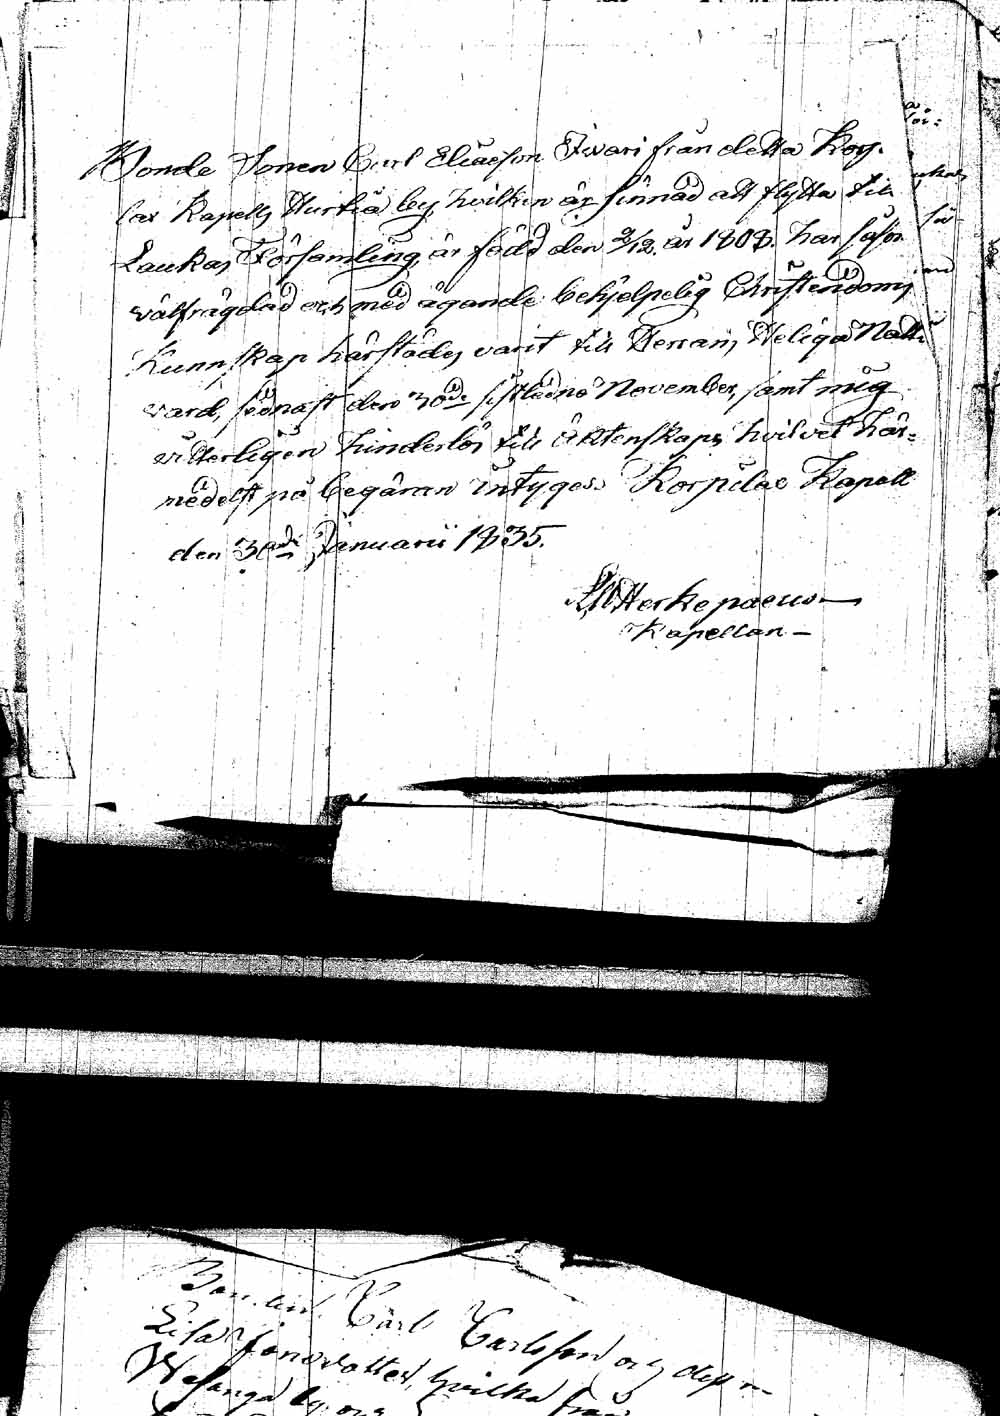 Bonde Sonen Carl Eliaeson Tivari från detta Korp-
lax Kapells Hurkia by, hvilken är sinnad att flytta till
Laukas Församling, är född den 2/12. år 1808. har såsom
välfrägdad och med ägande behjelpelig Christendoms
Kunnskap härstädes varit till Herrans Heliga Natt-
vard, sednast den 30de sistledne November, samt mig
vitterligen hinderlös till Äktenskap; hvilket här-
medelst på begäran intygas. Korpilax Kapell
den 30de Januarii 1835.
Herkepaeus
Kapellan
Carl Carlsson och des
Lisa Jonsdotter, hvilka från
Wesanga by och